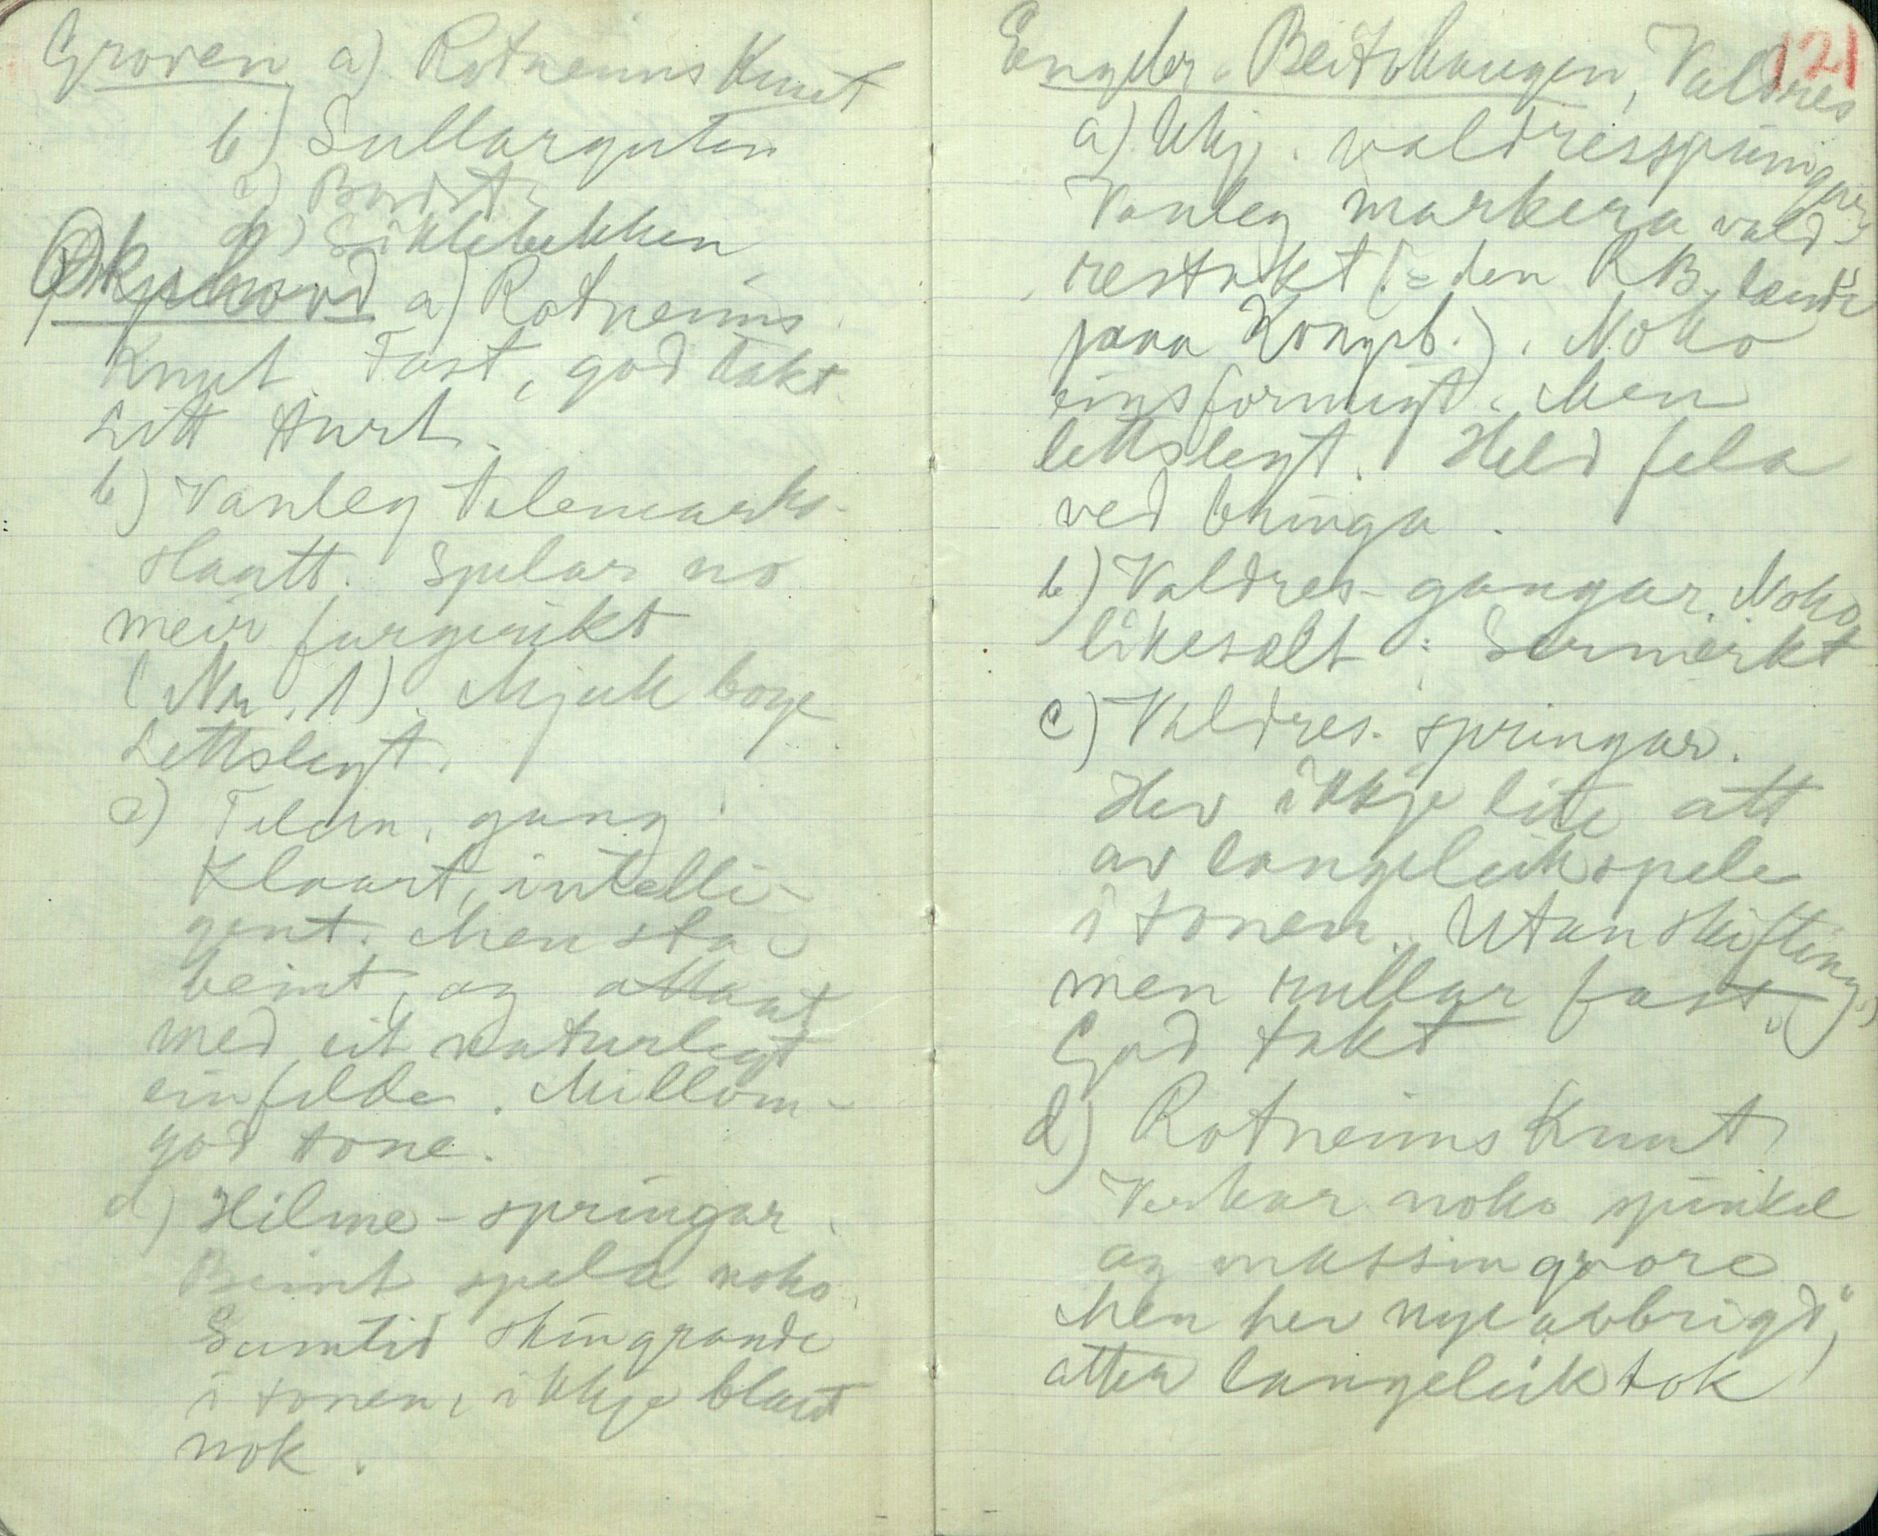 Groven a) Rotneims Knut
b) Sullarguten
c) Bordst.
d) Siklebekken
Økshovd a) Rotneims
Knut. Fast, god takt.
Litt turt.
b) Vanleg telemarks-
slaatt. Spelar no
meir fargerikt
(Nr. 1). Mjuk boge
Lettslegt.
c) Telem. gang.
Klaart, intelli-
gent. Men sta
beint, og attaat
med eit naturlegt
einfelde. Millom-
god tone.
d) Hilme-springar.
Beint spela noko
Sumtid skingrande
i tonen, ikkje blaut
nok.
Engebr. Beitohaugen, Valdres
121
a) Ukj. valdresspringar
Vanleg markera vald-
restakt (= den R.B. lærde
paa Kongsb.). Noko
einsformigt. Men
lettslegt. Held fela
ved bringa.
b) Valdres-gangar. Noko
likesælt: Sermerkt
c) Valdres-springar.
Her ikkje lite att
av langeleikspele
i tonen. Utan skifting,
men rullar fast.
God takt
d) Rotneims Knut
Verkar noko spinkel
og
Men her nye avbrigd,
atter langeleiktok